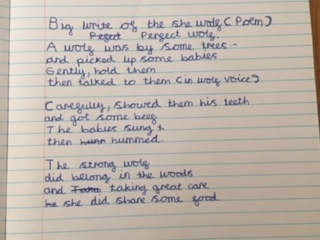 Big write of the she wolf (Poem)
Perfect wolf.
A wolf was by some trees -
and picked up some babies
Gently, hold them
then talked to them (in wolf voice)
Carefully, showed them his teeth
and got some beef
The babies sung &
then hummed.
The strong wolf
did belong in the woods
and taking great care
he she did share some good